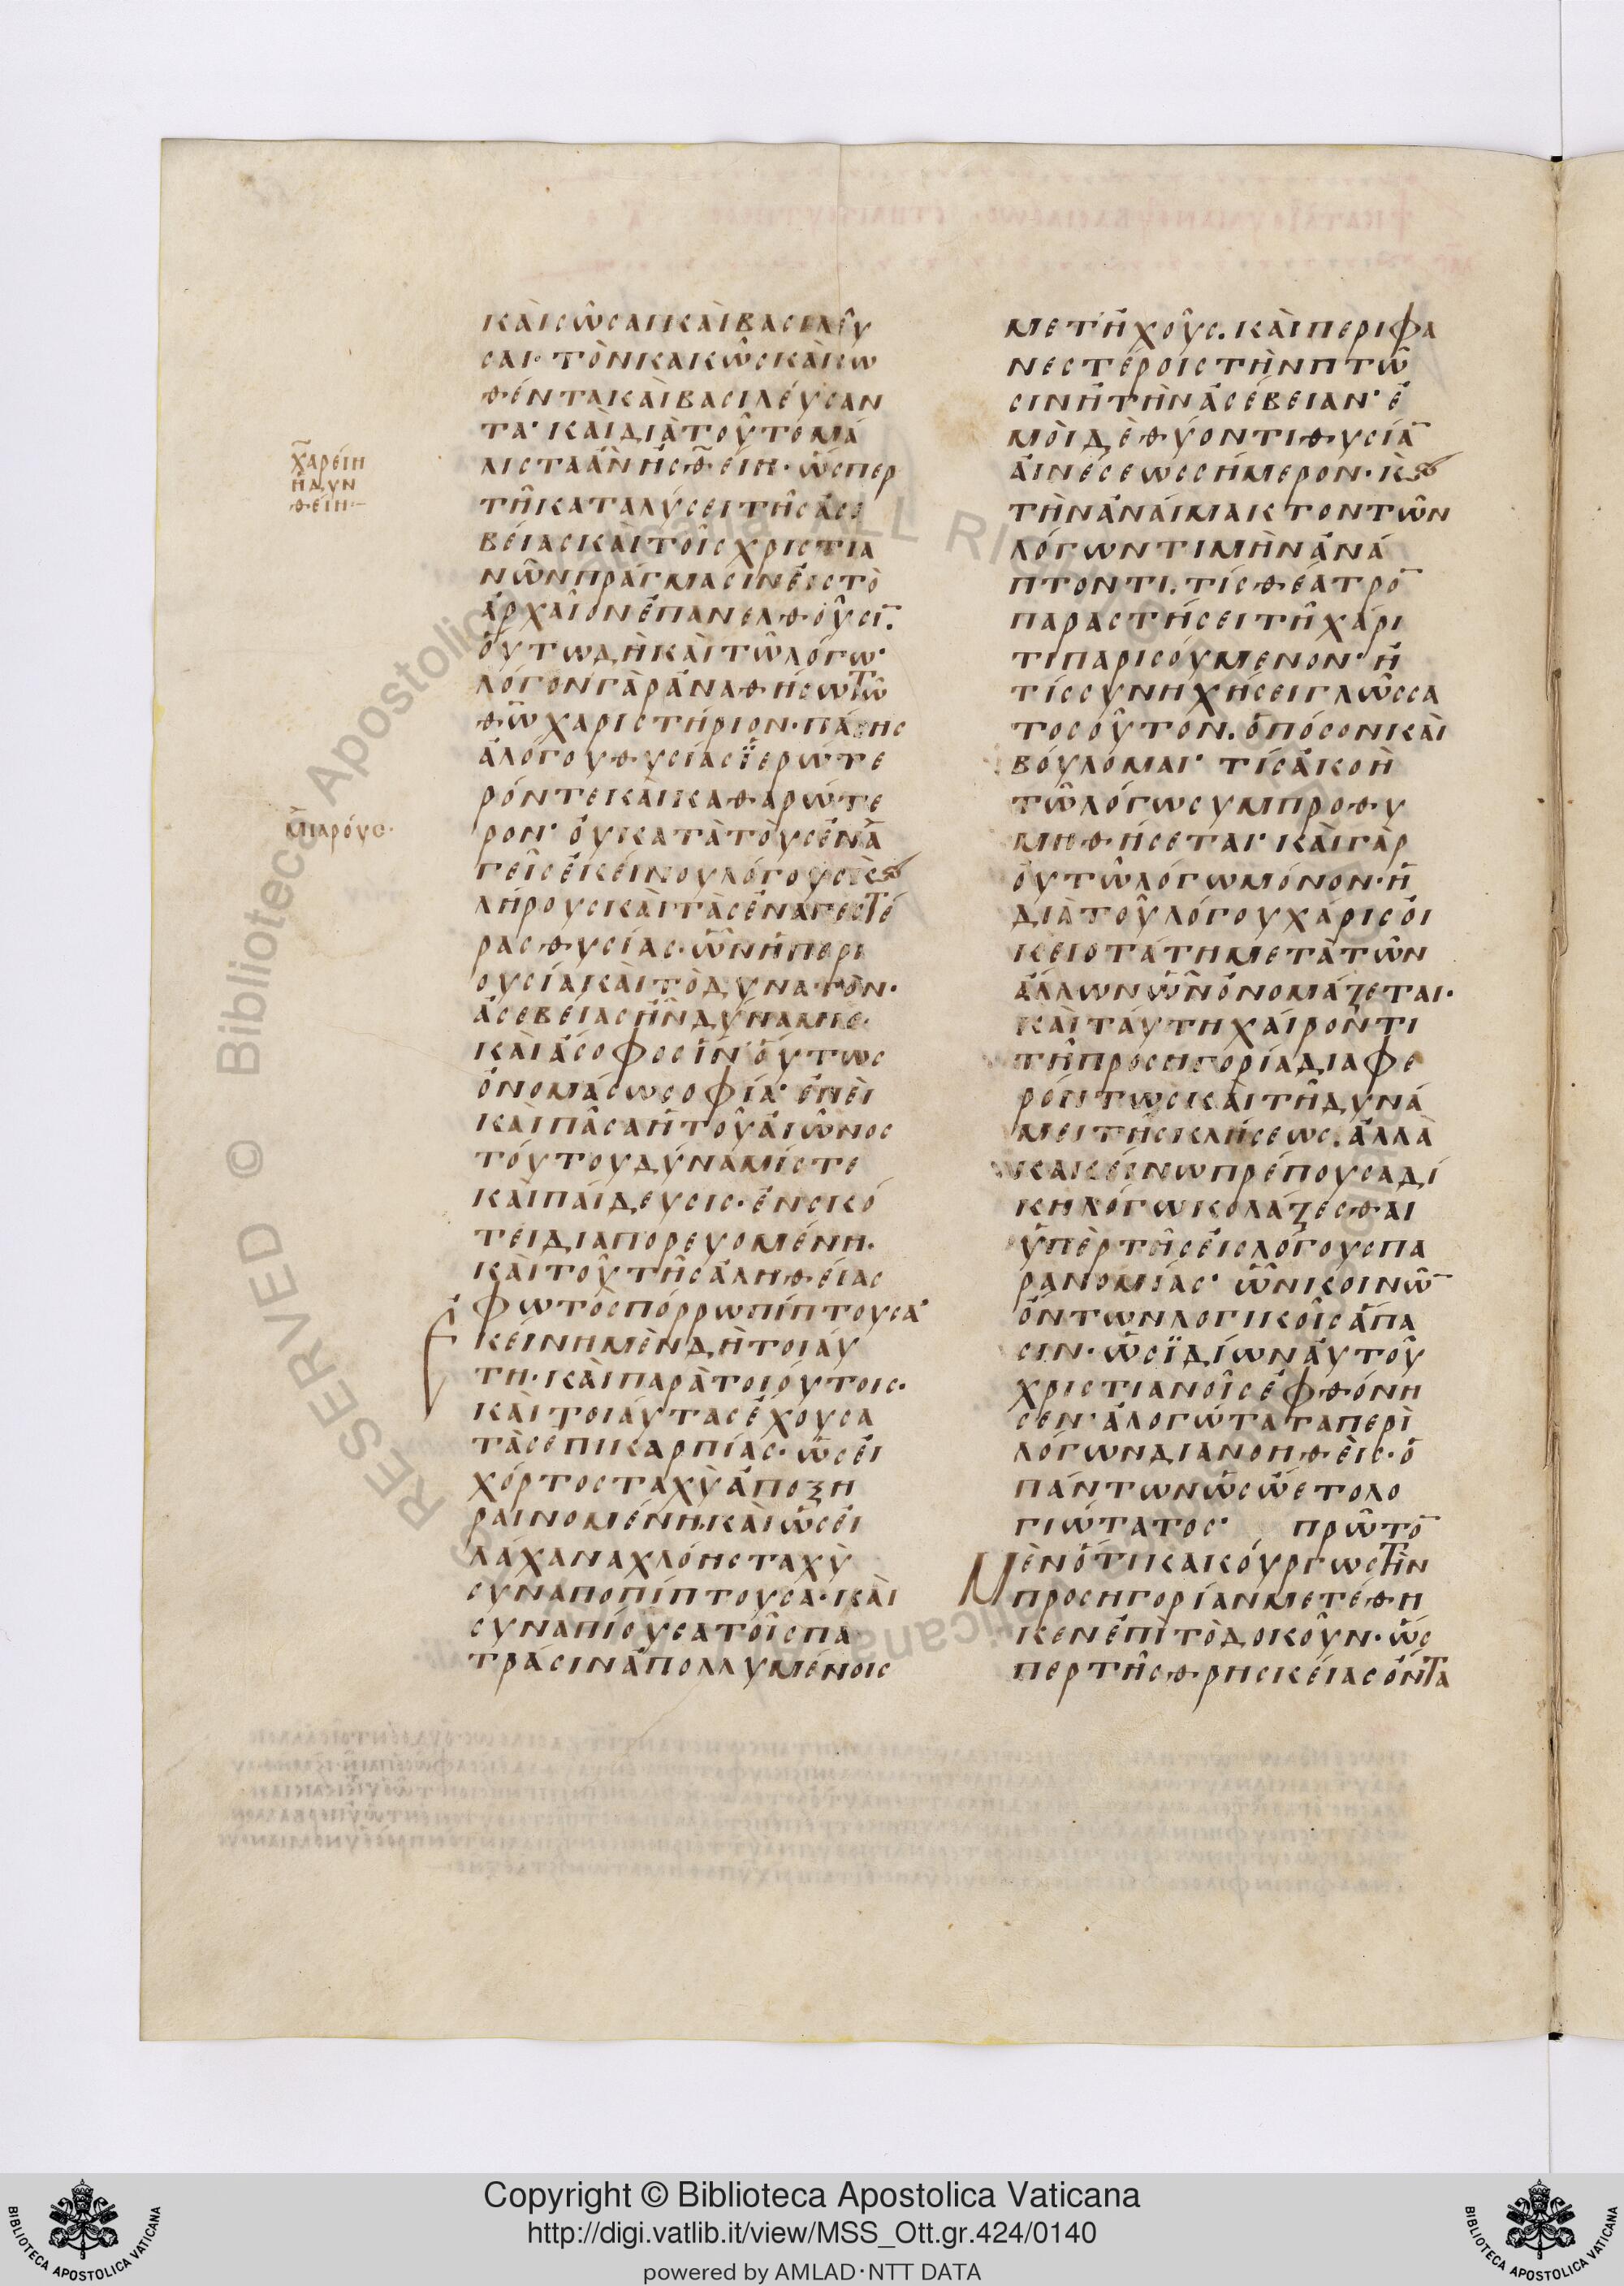 ΚΑῚ ΣΩ͂ΣΑΙ ΚΑῚ ΒΑΣΙΛΕΥ͂
ΣΑΙ· ΤῸΝ ΚΑΚΩ͂Σ ΚΑῚ ΣΩ
ΘΈΝΤΑ ΚΑῚ ΒΑΣΙΛΕΎΣΑΝ
ΤΑ· ΚΑῚ ΔΙᾺ ΤΟΥ͂ΤΟ ΜΆ
ΛΙΣΤΑ ἊΝ ἩΣΘΕΊΗ· ὭΣΠΕΡ
ΤΗ͂ ΚΑΤΑΛΎΣΕΙ ΤΗ͂Σ ἈΣΕ
ΒΕΊΑΣ ΚΑῚ ΤΟΙ͂Σ ΧΡΙΣΤΙΑ
ΝΩ͂Ν ΠΡΆΓΜΑΣΙΝ ΕἸΣ ΤῸ
ἈΡΧΑΙ͂ΟΝ ἘΠΑΝΕΛΘΟΥ͂ΣΙ̅.
ΟὝΤΩ ΔῊ ΚΑῚ ΤΩ͂ ΛΌΓΩ·
ΛΌΓΟΝ ΓᾺΡ ἈΝΑΘΉΣΩ ΤΩ͂
Θ̅Ω̅ ΧΑΡΙΣΤΉΡΙΟΝ· ΠΆΣΗΣ
ἈΛΌΓΟΥ ΘΥΣΊΑΣ ἹΕΡΏΤΕ
ΡΌΝ ΤΕ ΚΑῚ ΚΑΘΑΡΏΤΕ
ΡΟΝ· ΟΥ̓ ΚΑΤᾺ ΤΟῪΣ ἘΝΑ̅
ΓΕΙ͂Σ ἘΚΕΊΝΟΥ ΛΌΓΟΥΣ Κ̀
ΛΉΡΟΥΣ ΚΑῚ ΤᾺΣ ἘΝΑΓΕΣΤΈ
ΡΑΣ ΘΥΣΊΑΣ· ὯΝ Ἡ ΠΕΡΙ
ΟΥΣΊΑ ΚΑῚ ΤῸ ΔΥΝΑΤῸΝ·
ἈΣΕΒΕΊΑΣ ἮΝ ΔΎΝΑΜΙΣ·
ΚΑῚ ἌΣΟΦΟΣ ἽΝ' ΟὝΤΩΣ
ὈΝΟΜΆΣΩ ΣΟΦΊΑ· ἘΠΕῚ
ΚΑῚ ΠΑ͂ΣΑ Ἡ ΤΟΥ͂ ΑἸΩ͂ΝΟΣ
ΤΟΎΤΟΥ ΔΎΝΑΜΊΣ ΤΕ
ΚΑῚ ΠΑΊΔΕΥΣΙΣ· ἘΝ ΣΚΌ
ΤΕΙ ΔΙΑΠΟΡΕΥΟΜΈΝΗ·
ΚΑῚ ΤΟΥ͂ ΤΗ͂Σ ἈΛΗΘΕΊΑΣ
ΦΩΤῸΣ ΠΌΡΡΩ ΠΊΠΤΟΥΣΑ· Ἐ
ΚΕΊΝΗ ΜῈΝ ΔῊ ΤΟΙΑΎ
ΤΗ· ΚΑῚ ΠΑΡᾺ ΤΟΙΟΎΤΟΙΣ·
ΚΑῚ ΤΟΙΑΎΤΑΣ ἜΧΟΥΣΑ
ΤᾺΣ ἘΠΙΚΑΡΠΊΑΣ· ὩΣΕῚ
ΧΌΡΤΟΣ ΤΑΧῪ ἈΠΟΞΗ
ΡΑΙΝΟΜΈΝΗ· ΚΑῚ ὩΣΕῚ
ΛΆΧΑΝΑ ΧΛΌΗΣ ΤΑΧῪ
ΣΥΝΑΠΟΠΊΠΤΟΥΣΑ· ΚΑῚ
ΣΥΝΑΠΙΟΥ͂ΣΑ ΤΟΙ͂Σ ΠΑ
ΤΡΆΣΙΝ ἈΠΟΛΛΥΜΈΝΟΙΣ
ΧΑΡΕΊΗ
ἩΔΥΝ
ΘΕΊΗ
ΜΙΑΡΟΎΣ·
ΜΕΤ' ἨΧΟΥ͂Σ. ΚΑῚ ΠΕΡΙΦΑ
ΝΕΣΤΈΡΟΙΣ ΤῊΝ ΠΤΩ͂
ΣΙΝ Ἢ ΤῊΝ ἈΣΈΒΕΙΑΝ· Ἐ
ΜΟῚ ΔῈ ΘΎΟΝΤΙ ΘΥΣΊΑ̅
ΑἸΝΈΣΕΩΣ ΣΉΜΕΡΟΝ· Κ̀
ΤῊΝ ἈΝΑΊΜΑΚΤΟΝ ΤΩ͂Ν
ΛΌΓΩΝ ΤΙΜῊΝ ἈΝΆ
ΠΤΟΝΤΙ. ΤΊΣ ΘΈΑΤΡΟ̅
ΠΑΡΑΣΤΉΣΕΙ ΤΗ͂ ΧΆΡΙ
ΤΙ ΠΑΡΙΣΟΎΜΕΝΟΝ· Ἢ
ΤΊΣ ΣΥΝΗΧΉΣΕΙ ΓΛΩ͂ΣΣΑ
ΤΟΣΟΥ͂ΤΟΝ. ὉΠΌΣΟΝ ΚΑῚ
ΒΟΎΛΟΜΑΙ· ΤΊΣ ἈΚΟῊ
ΤΩ͂ ΛΌΓΩ ΣΥΜΠΡΟΘΥ
ΜΗΘΉΣΕΤΑΙ· ΚΑῚ ΓᾺΡ
ΟΥ̓ ΤΩ͂ ΛΌΓΩ ΜΌΝΟΝ· Ἡ
ΔΙᾺ ΤΟΥ͂ ΛΌΓΟΥ ΧΆΡΙΣ ΟἸ
ΚΕΙΟΤΆΤΗ ΜΕΤᾺ ΤΩ͂Ν
ἌΛΛΩΝ ὯΝ ὈΝΟΜΆΖΕΤΑΙ·
ΚΑῚ ΤΑΎΤΗ ΧΑΊΡΟΝΤΙ
ΤΗ͂ ΠΡΟΣΗΓΟΡΊΑ ΔΙΑΦΕ
ΡΌΝΤΩΣ ΚΑῚ ΤΗ͂ ΔΥΝΆ
ΜΕΙ ΤΗ͂Σ ΚΛΉΣΕΩΣ. ἈΛΛᾺ
ΚΑΚΕΊΝΩ ΠΡΈΠΟΥΣΑ ΔΊ
ΚΗ ΛΌΓΩ ΚΟΛΆΖΕΣΘΑΙ
ὙΠῈΡ ΤΗ͂Σ ΕἸΣ ΛΌΓΟΥΣ ΠΑ
ΡΑΝΟΜΊΑΣ· ὯΝ ΚΟΙΝΩ̅͂
ὌΝΤΩΝ ΛΟΓΙΚΟΙ͂Σ ἍΠΑ
ΣΙΝ· ὩΣ ἸΔΊΩΝ ΑὙΤΟΥ͂
ΧΡΙΣΤΙΑΝΟΙ͂Σ ἘΦΘΌΝΗ
ΣΕΝ· ἈΛΟΓΏΤΑΤΑ ΠΕΡῚ
ΛΌΓΩΝ ΔΙΑΝΟΗΘΕῚΣ· Ὁ
ΠΆΝΤΩΝ ὩΣ ὬΕΤΟ ΛΟ
ΓΙΏΤΑΤΟΣ· ΠΡΩ͂ΤΟ̅
ΜῈΝ ὍΤΙ ΚΑΚΟΎΡΓΩΣ ΤῊΝ
ΠΡΟΣΗΓΟΡΊΑΝ ΜΕΤΈΘΗ
ΚΕΝ ἘΠῚ ΤῸ ΔΟΚΟΥ͂Ν· ὭΣ
ΠΕΡ ΤΗ͂Σ ΘΡΗΣΚΕΊΑΣ ὌΝΤΑ
RESERVED © Biblioteca Apostolica Vaticana
Copyright © Biblioteca Apostolica Vaticana
http://digi.vatlib.it/view/MSS_Ott.gr.424/0140
powered by AMLAD·NTT DATA
BIBLIOTECA APOSTOLICA VATICANA
BIBLIOTECA APOSTOLICA VATICANA